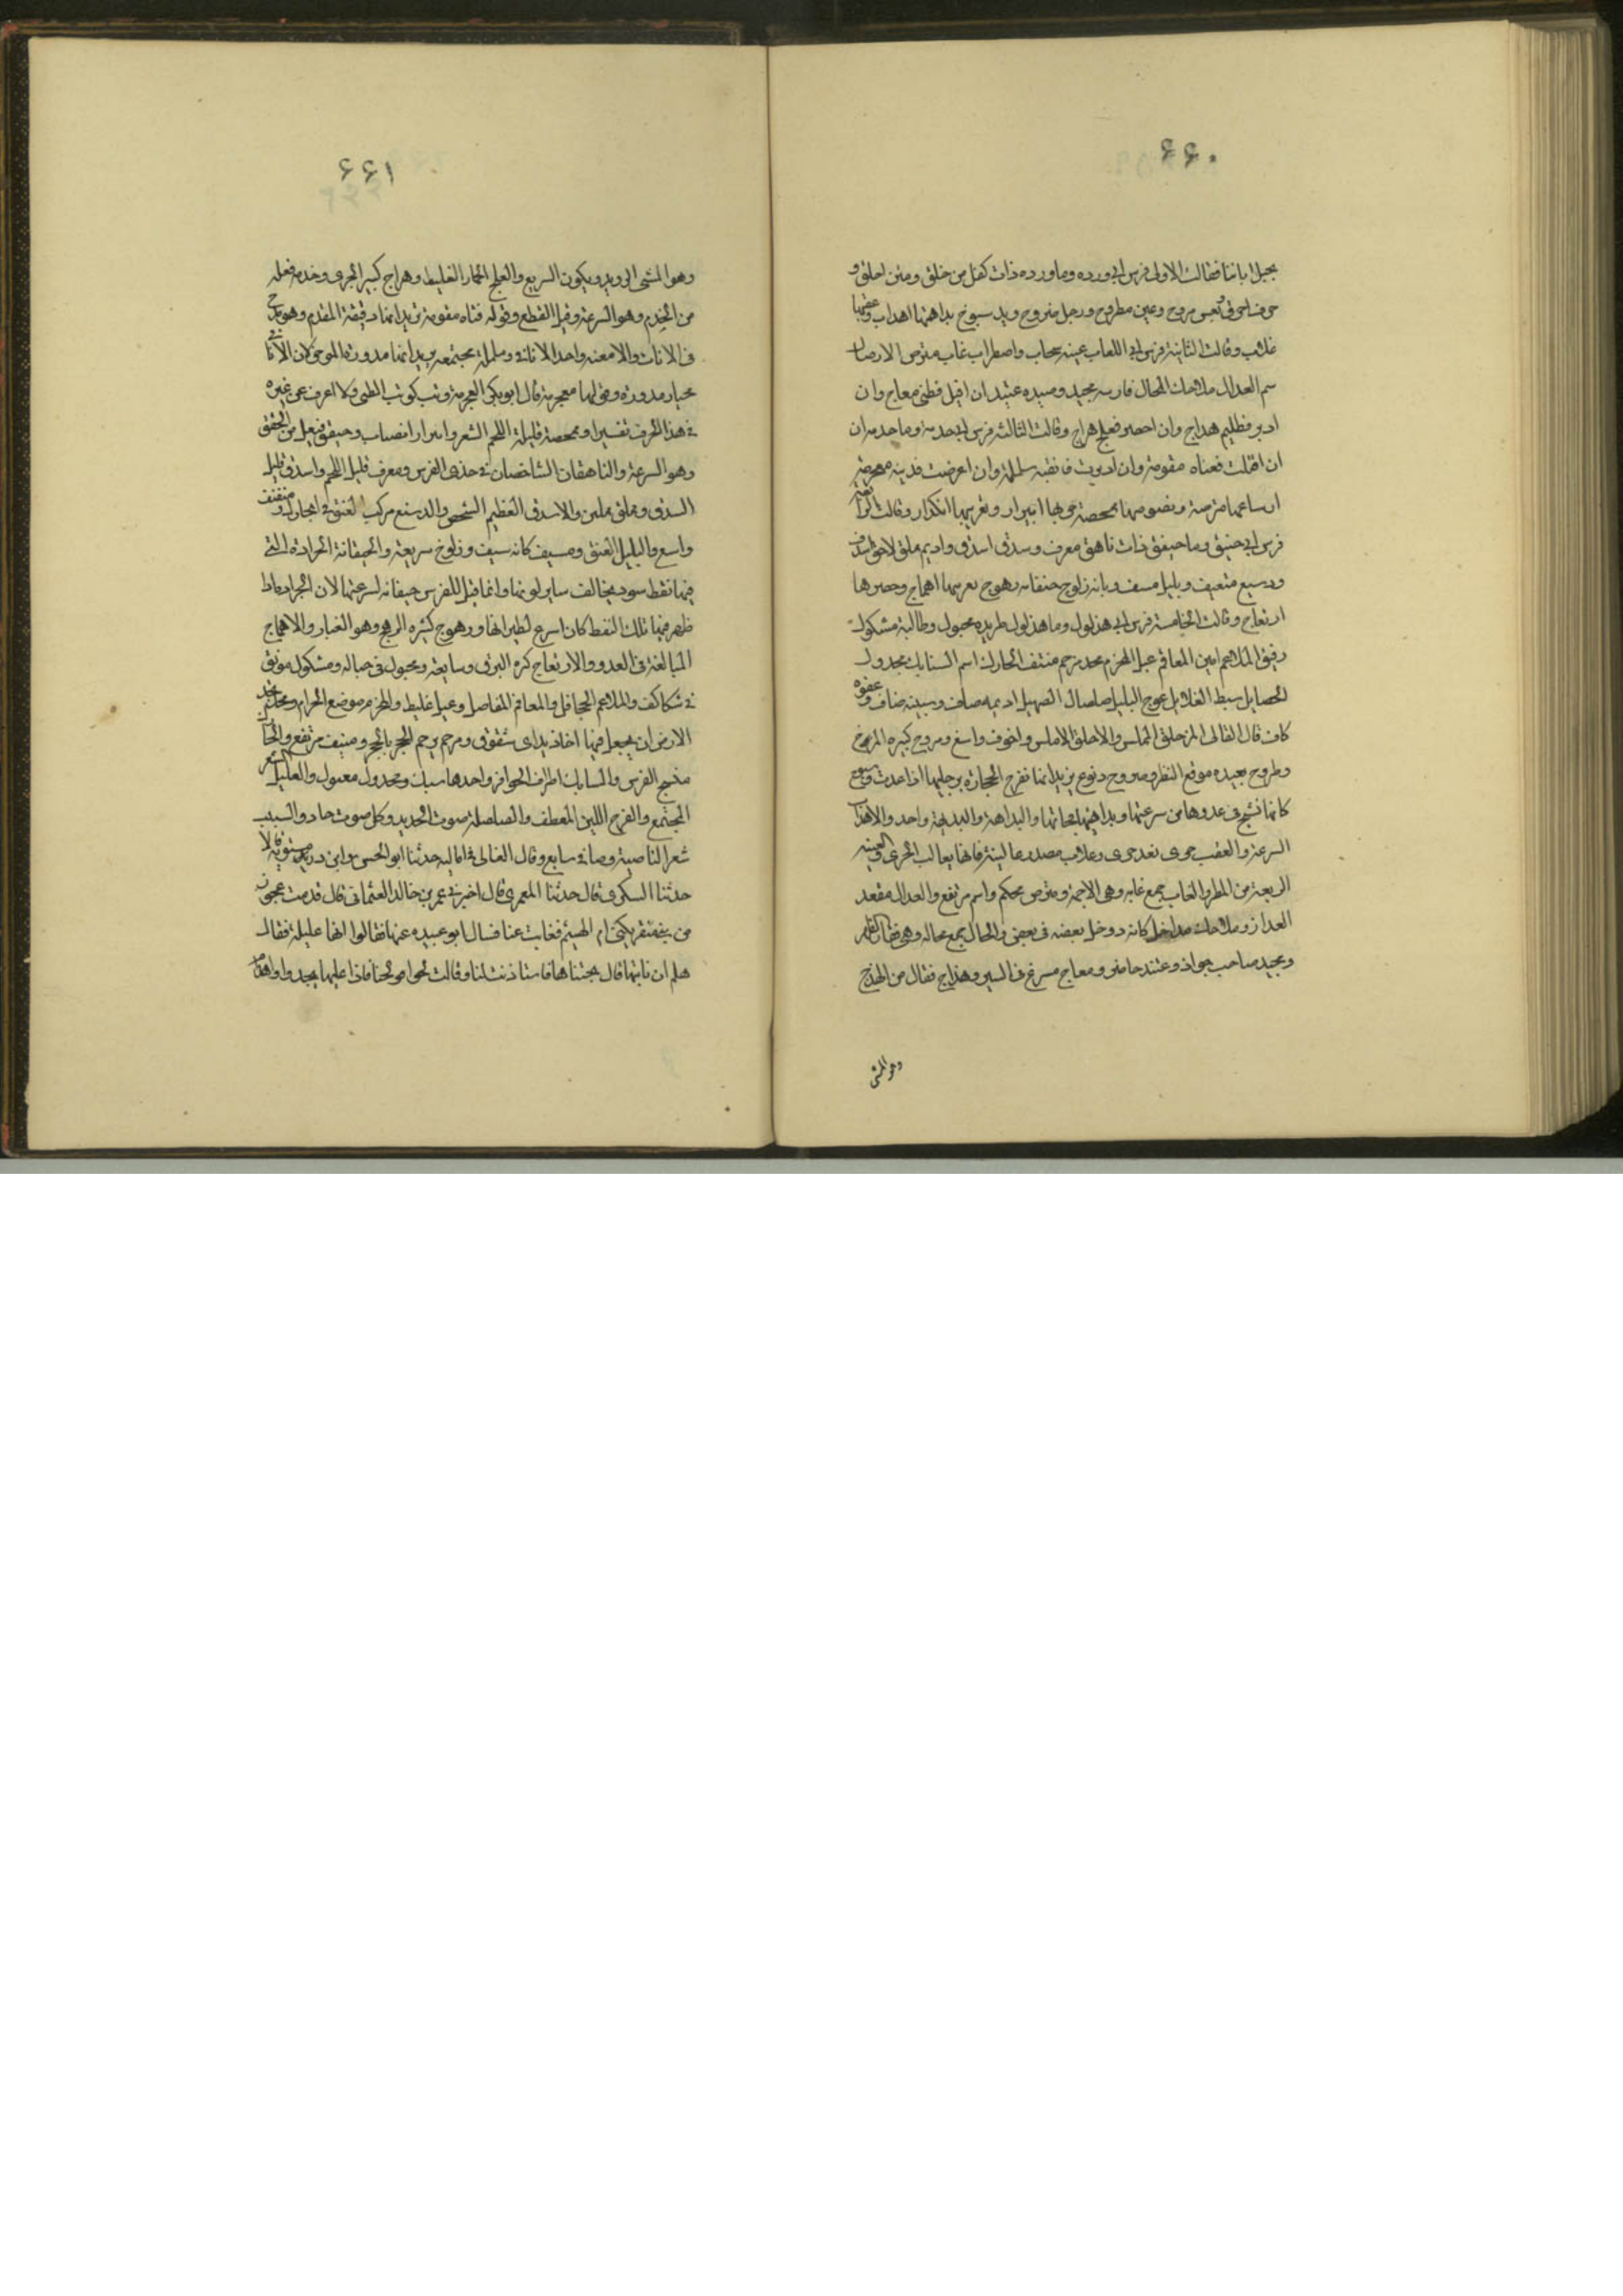 ۶۶۰
بخيل ابائنا فقالت الاولى فرس ابى ورده وما ورده ذات كفل من خلق ومتن اخلق و
جوف اخوق ونفس مروح وعين مطروح ورجل ضروح ويد سبوح بداهتها اهذاب وعقبها
غلاب وقالت الثانية فرس ابى اللعاب غبية سحاب واضطرام غاب مترص الاوصال
اشم القذال ملاحك المحال فارسه مجيد وصيده عتيد ان اقبل فظبى معاج وان
ادبر فظليم هداج وان احضر فعلج هراج وقالت الثالثة فرس ابى خدمة وما خدمة ان
ان اقبلت فقناه مقومة وان ادبرت فاثفية ململمة وان اعرضت فذئبة معجرمة
ارساغها مترصة وفصوصها ممحصة جريها انبرار وتقريبها انكدار وقالت الرابعة
فرس ابى خيفق وما خيفق ذات ناهق معرق وشدق اشدق واديم مملق لها خلق اشدف
ودسيع منفنف وتليل مسيف وثابة زلوج خيفانة رهوج تقريبها اهماج وحضرها
ارتعاج وقالت الخامسة فرس ابى هذلول وما هذلول طريده محبول وطالبه مشكول
رقيق الملاغم امين المعاقم عبل المحزم مخد مرجم منيف الحارك اشم السنابك مجدول
الخصايل سبط الفلائل غوج التليل صلصال الصهيل اديمه صاف وسبيبه ضاف وعفوه
كاف قال القالى المزحلق المملس والاخلق الاملس واخوق واسع ومروح كثيرة المرح
وطروح بعيدة موقع النظر وضروح دفوع يريد انها تضرح الحجارة برجليها اذا عدت وسبوح
كانها تسبح فى عدوها من سرعتها وبداهتها فجاءتها والبداهة والبديهة واحد والاهذاب
السرعة والعقب جرى بعد جرى وغلاب مصدر غالبته فانها تغالب الجرى والغبية
الدفعة من المطر والغاب جمع غابه وهى الاجمة ومترص محكم واشم مرتفع والقذال معقد
العذار وملاحك مداخل كانه دوخل بعضه فى بعض والمحال جمع محاله وهى فقار الظهر
ومجيد صاحب جواد وعتيد حاضر ومعاج مسرع فى السير وهداج فعال من الهدج
وهو المشى
۶۶۱
وهو المشى الرويد ويكون السريع والعلج الحمار الغليظ وهراج كثير الجرى وخدمة فعلة
من الخدم وهو السرعة وقيل القطع وقوله قناه مقومة يريد انها دقيقة المقدم وهو مدح
فى الاناث والاثفية واحد الاثافى وململمة مجتمعة يريد انها مدورة المؤخر لان الاثافى
تختار مدورة وقولها معجرمة قال ابو بكر العجرمة وثب كوثب الظبى ولا اعرف عن غيره
فى هذا الحرف تفسيرا وممحصة قليلة اللحم الشعر وانبرار انصباب وخيفق فيعل من الخفق
وهو السرعة والناهقان الشاخصان فى خدى الفرس ومعرق قليل اللحم واشدق طويل
الشدق ومملق مملس والاشدف العظيم الشخص والدسيع مركب العنق فى الحارك ومنفنف
واسع والتليل العنق ومسيف كانه سيف وزلوج سريعة والخيفانة الجرادة التى
فيها نقط سود يخالف ساير لونها وانما قيل للفرس خيفانه لسرعتها لان الجراد اذا
ظهر فيها تلك النقط كان اسرع لطيرانها ورهوج كثيره الرهج وهو الغبار والاهماج
المبالغة فى العدو والارتعاج كثره البرق وتتابعه ومحبول فى حباله ومشكول موثق
فى شكال والملاغم الجحافل والمعاقم المفاصل وعبل غليظ والمحزم موضع الحزام ومخد يخد
الارض ان يجعل فيها اخاديد اى شقوق ومرجم يرجم الحجر بالحجر ومنيف مرتفع والحارك
منسج الفرس والسنابك اطراف الحوافر واحدها سنبك ومجدول مفتول والفليل الشعر
المجتمع والغوج اللين المعطف والصلصلة صوت الحديد وكل صوت حاد والسبيب
شعر الناصية وضافى سابغ وقال القالى فى اماليه حدثنا ابو الحسن وابن درستويه قالا
حدثنا السكرى قال حدثنا المعمرى قال اخبرنى عمر بن خالد العثمانى قال قدمت عجوز
من بنى منقر يكنى ام الهيثم فغابت عنا فسال ابو عبيده عنها فقالوا انها عليلة فقال
هلم ان ناتيها قال فجئناها فاستاذنت لنا وقالت